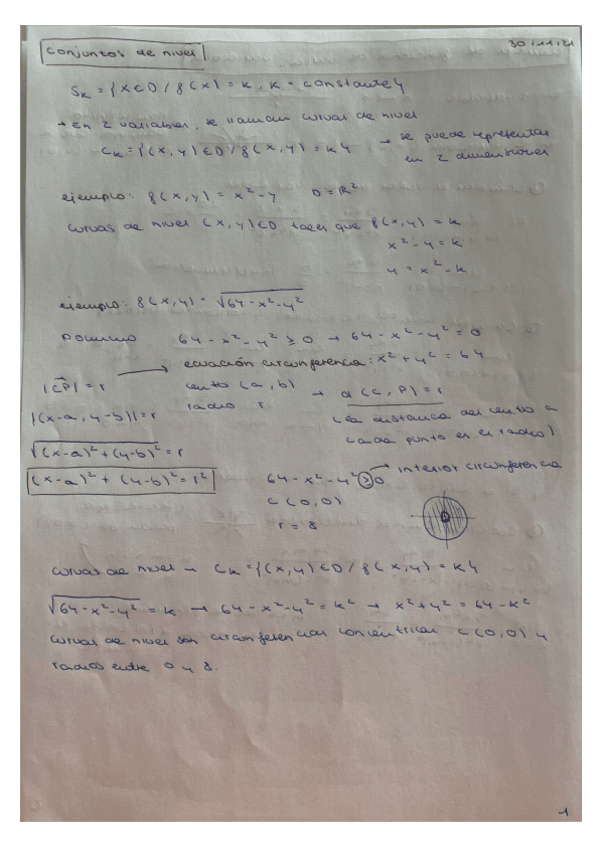 30/11/21
Conjuntos de nivel
Sₖ = {x∈D / f(x) = k, k = constante}
→ En 2 variables, se llaman curvas de nivel
Cₖ = {(x,y)∈D / f(x,y) = k} → se puede representar
en 2 dimensiones
ejemplo: f(x,y) = x² - y D = ℝ²
curvas de nivel (x,y)∈D tales que f(x,y) = k
x² - y = k
y = x² - k
ejemplo: f(x,y) = √(64 - x² - y²)
Dominio 64 - x² - y² ≥ 0 → 64 - x² - y² = 0
→ ecuación circunferencia: x² + y² = 64
|CP| = r centro (a,b) → d(C,P) = r
radio r
|(x-a, y-b)| = r (la distancia del centro a
cada punto es el radio)
√((x-a)² + (y-b)²) = r
(x-a)² + (y-b)² = r²
64 - x² - y² ≥ 0 → interior circunferencia
C(0,0)
r = 8
D
curvas de nivel → Cₖ = {(x,y)∈D / f(x,y) = k}
√(64 - x² - y²) = k → 64 - x² - y² = k² → x² + y² = 64 - k²
curvas de nivel son circunferencias concéntricas C(0,0) y
radios entre 0 y 8.
1